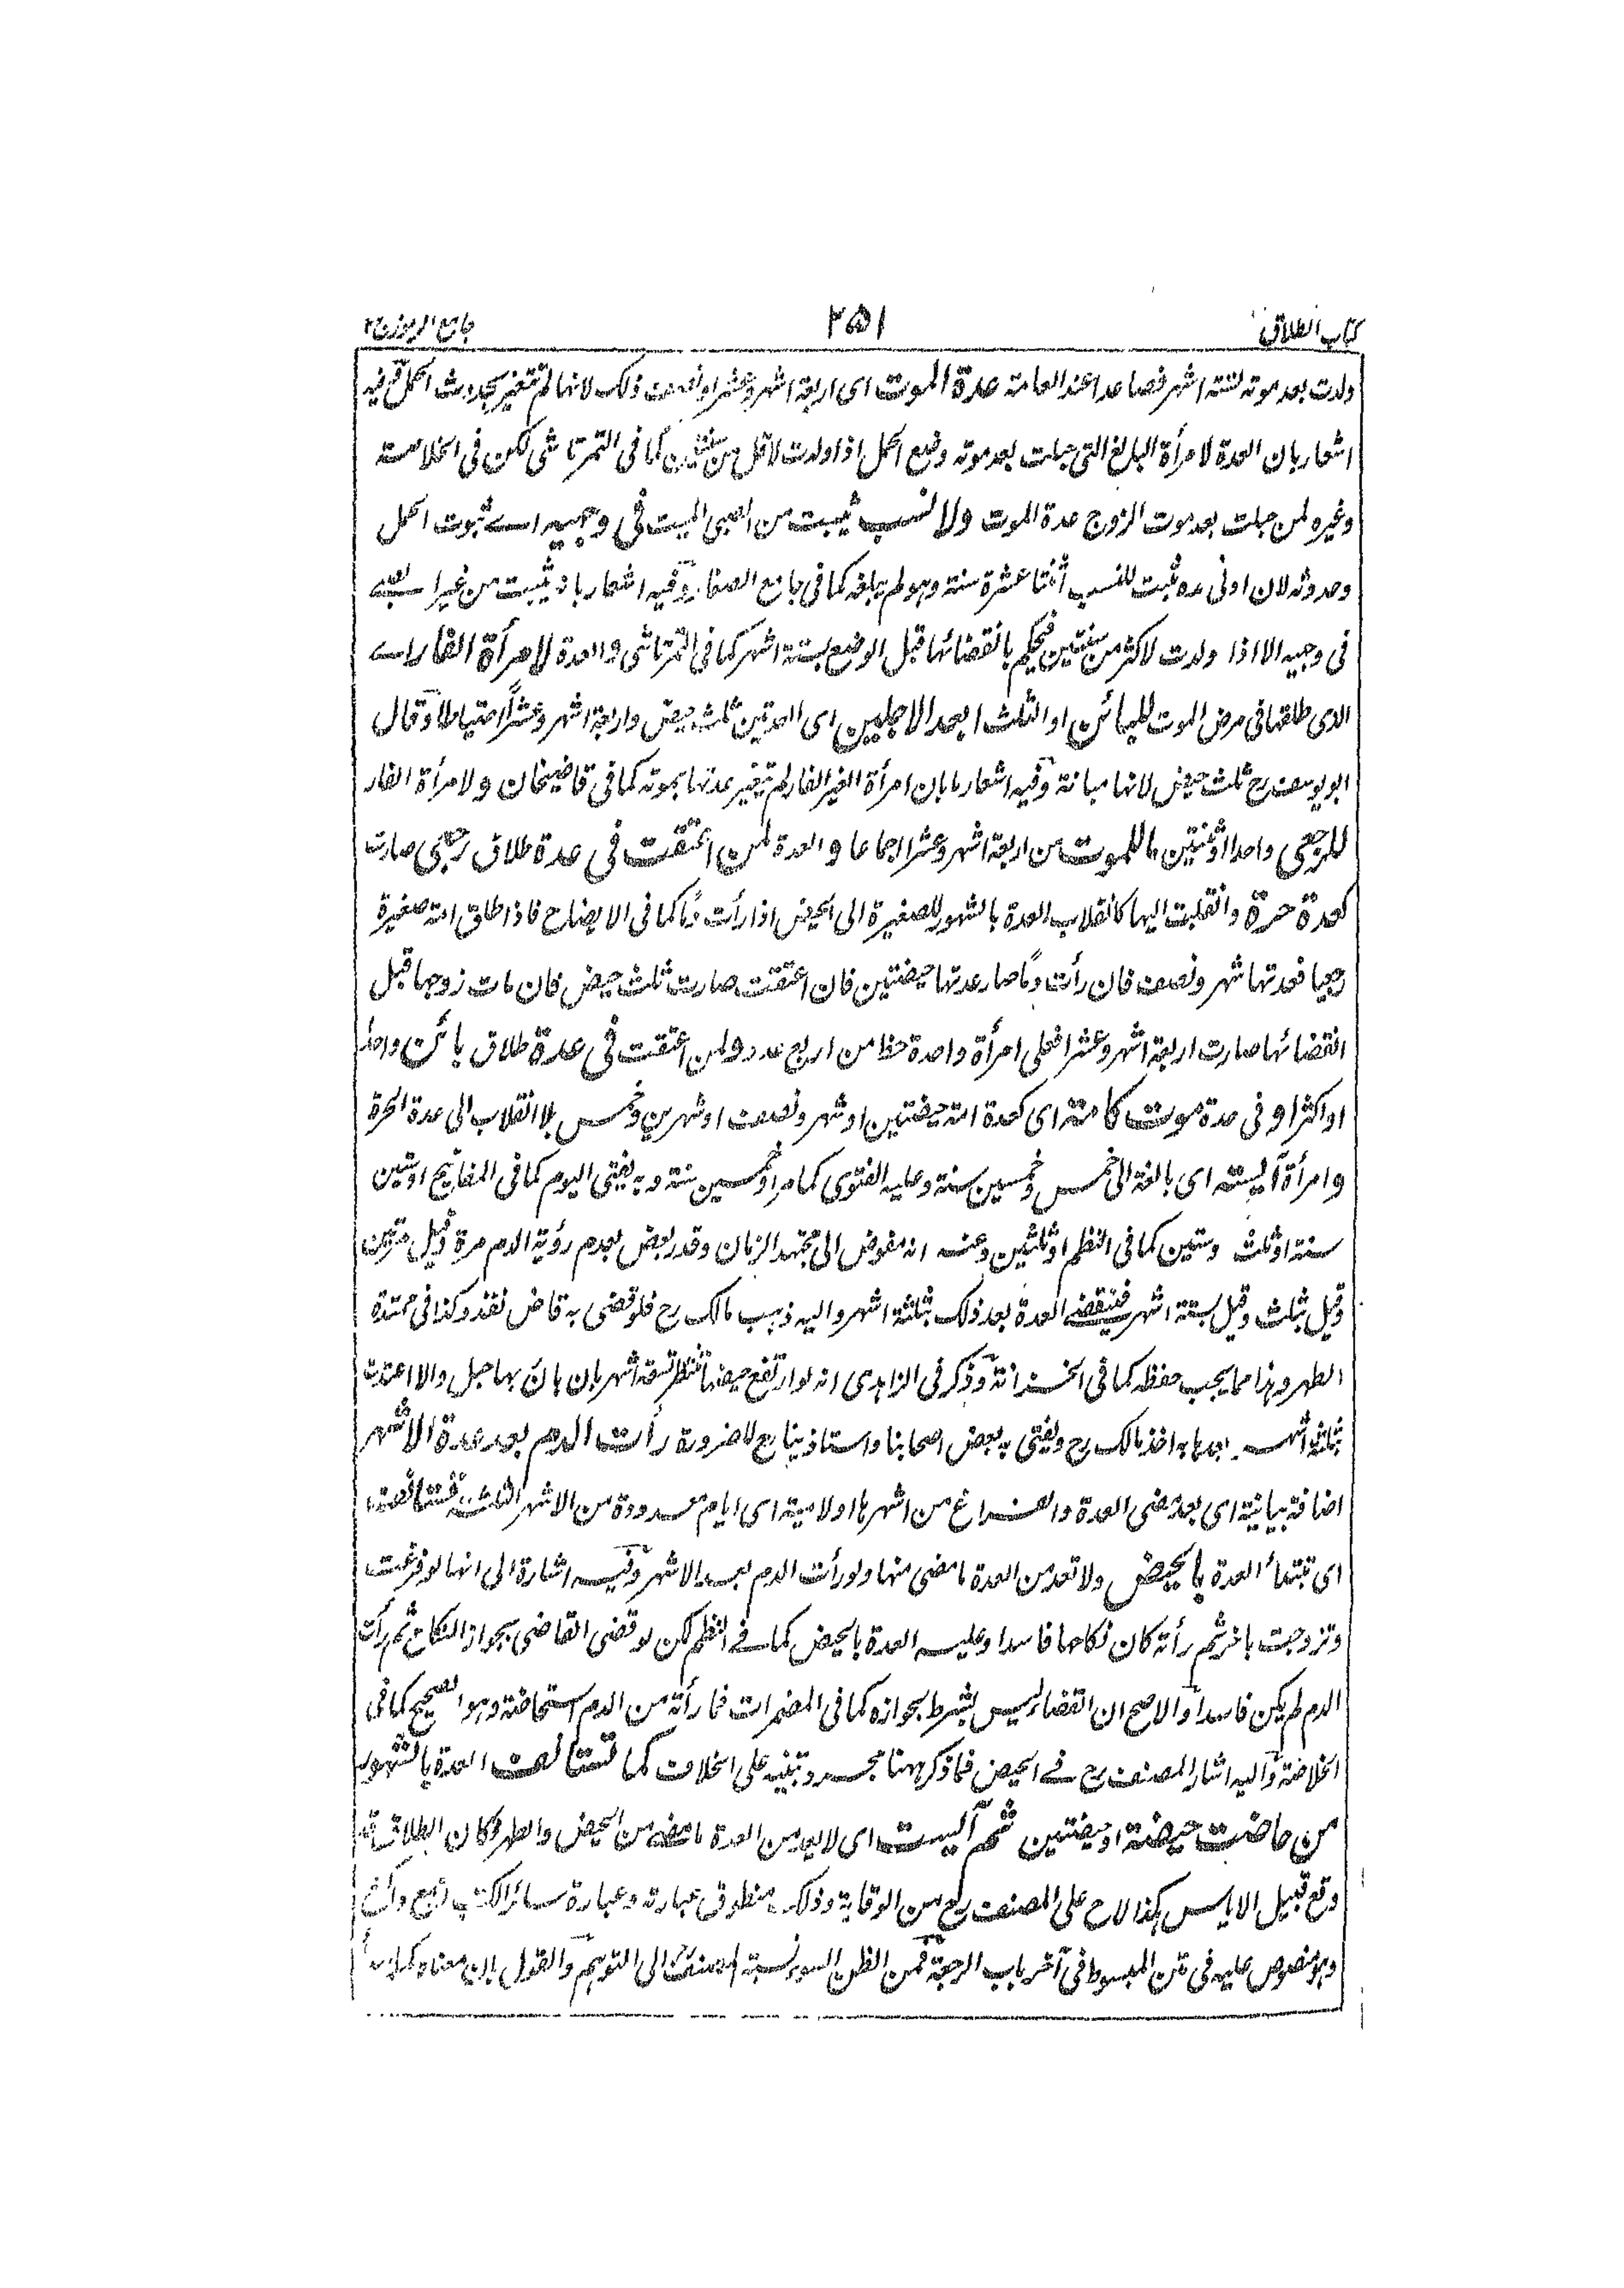 كتاب الطلاق
٢٥١
جامع الرموز ٢
ولدت بعد موته لستة اشهر فصاعدا عند العامة عدة الموت اى اربعة اشهر وعشرا او نصف ذلك لانها لم تتغير بحدوث الحمل وفيه
اشعار بان العدة لامرأة البالغ التى حبلت بعد موته وضع الحمل اذا ولدت لاقل من سنتين كما فى التمرتاشى لكن فى الخلاصة
وغيره لمن حبلت بعد موت الزوج عدة الموت ولا نسب يثبت من الصبى الميت فى وجهيه اى ثبوت الحمل
وحدوثه لان ادنى مدة تثبت للنسب اثنتا عشرة سنة وهو لم يبلغه كما فى جامع الصغار وفيه اشعار بانه يثبت من غير الصبى
فى وجهيه الا اذا ولدت لاكثر من سنتين فيحكم بانقضائها قبل الوضع بستة اشهر كما فى التمرتاشى والعدة لامرأة الفار اى
الذى طلقها فى مرض الموت للبائن او الثلث ابعد الاجلين اى العدتين ثلث حيض واربعة اشهر وعشرا احتياطا وقال
ابو يوسف رح ثلث حيض لانها مبانة وفيه اشعار ما بان امرأة الغير الفار لم تتغير عدتها بموته كما فى قاضيخان ولامرأة الفار
للرجعى واحدا او ثنتين ما للموت من اربعة اشهر وعشرا اجماعا والعدة لمن اعتقت فى عدة طلاق رجعى صارت
كعدة حرة وانقلبت اليها كانقلاب العدة بالشهور للصغيرة الى الحيض اذا رأت دما كما فى الايضاح فاذا طلق امته صغيرة
رجعيا فعدتها شهر ونصف فان رأت دما صار عدتها حيضتين فان اعتقت صارت ثلث حيض فان مات زوجها قبل
انقضائها صارت اربعة اشهر وعشرا فعلى امرأة واحدة حظا من اربع عدد ولمن اعتقت فى عدة طلاق بائن واحدا
او اكثر او فى عدة موت كامة اى كعدة امة حيضتين او شهر ونصف او شهرين وخمس بلا انقلاب الى عدة الحرة
وامرأة آيسة اى بالغة الى خمس وخمسين سنة وعليه الفتوى كما مر او خمسين سنة وبه يفتى اليوم كما فى المفاتيح او ستين
سنة او ثلث وستين كما فى النظم او ثلثين وعنه انه مفوض الى مجتهد الزمان وقدر بعض بعدم رؤية الدم مرة وقيل مرتين
وقيل بثلث وقيل بستة اشهر فتنقضى العدة بعد ذلك بثلثة اشهر واليه ذهب مالك رح فلو قضى به قاض نفذ وكذا فى ممتدة
الطهر وهذا مما يجب حفظه كما فى الخزانة وذكر فى الزاهدى انه لو ارتفع حيضها تنتظر تسعة اشهر بان بان بها حبل والا اعتدت
بثلثة اشهر بعدها به اخذ مالك رح ويفتى به بعض اصحابنا واستاذينا رح للضرورة رأت الدم بعد عدة الاشهر
اضافة بيانية اى بعد مضى العدة والفراغ من اشهرها او لامية اى ايام معدودة من الاشهر الثلثة فتستانف
اى تبتدأ العدة بالحيض ولا تعد من العدة ما مضى منها ولو رأت الدم بعد الاشهر وفيه اشارة الى انها لو فرغت
وتزوجت بآخر ثم رأته كان نكاحها فاسدا وعليه العدة بالحيض كما فى النظم لكن لو قضى القاضى بجواز النكاح ثم رأت
الدم لم يكن فاسدا والاصح ان القضاء ليس بشرط بجوازه كما فى المضمرات فما رأته من الدم استحاضة وهو الصحيح كما فى
الخلاصة واليه اشار المصنف رح فى الحيض فما ذكر ههنا مجرد تنبيه على الخلاف كما تستانف العدة بالشهور
من حاضت حيضة او حيضتين ثم آيست اى لا يعد من العدة ما مضى من الحيض والطهر وكان الطلاق
وقع قبيل الاياس هكذا لاح على المصنف رح من الوقاية وذلك منطوق عبارته وعبارة سائر الكتب
وهو منصوص عليه فى متن المبسوط فى آخر باب الرجعة فمن الظن السوء نسبة المصنف الى التوهم والقول بان معناه